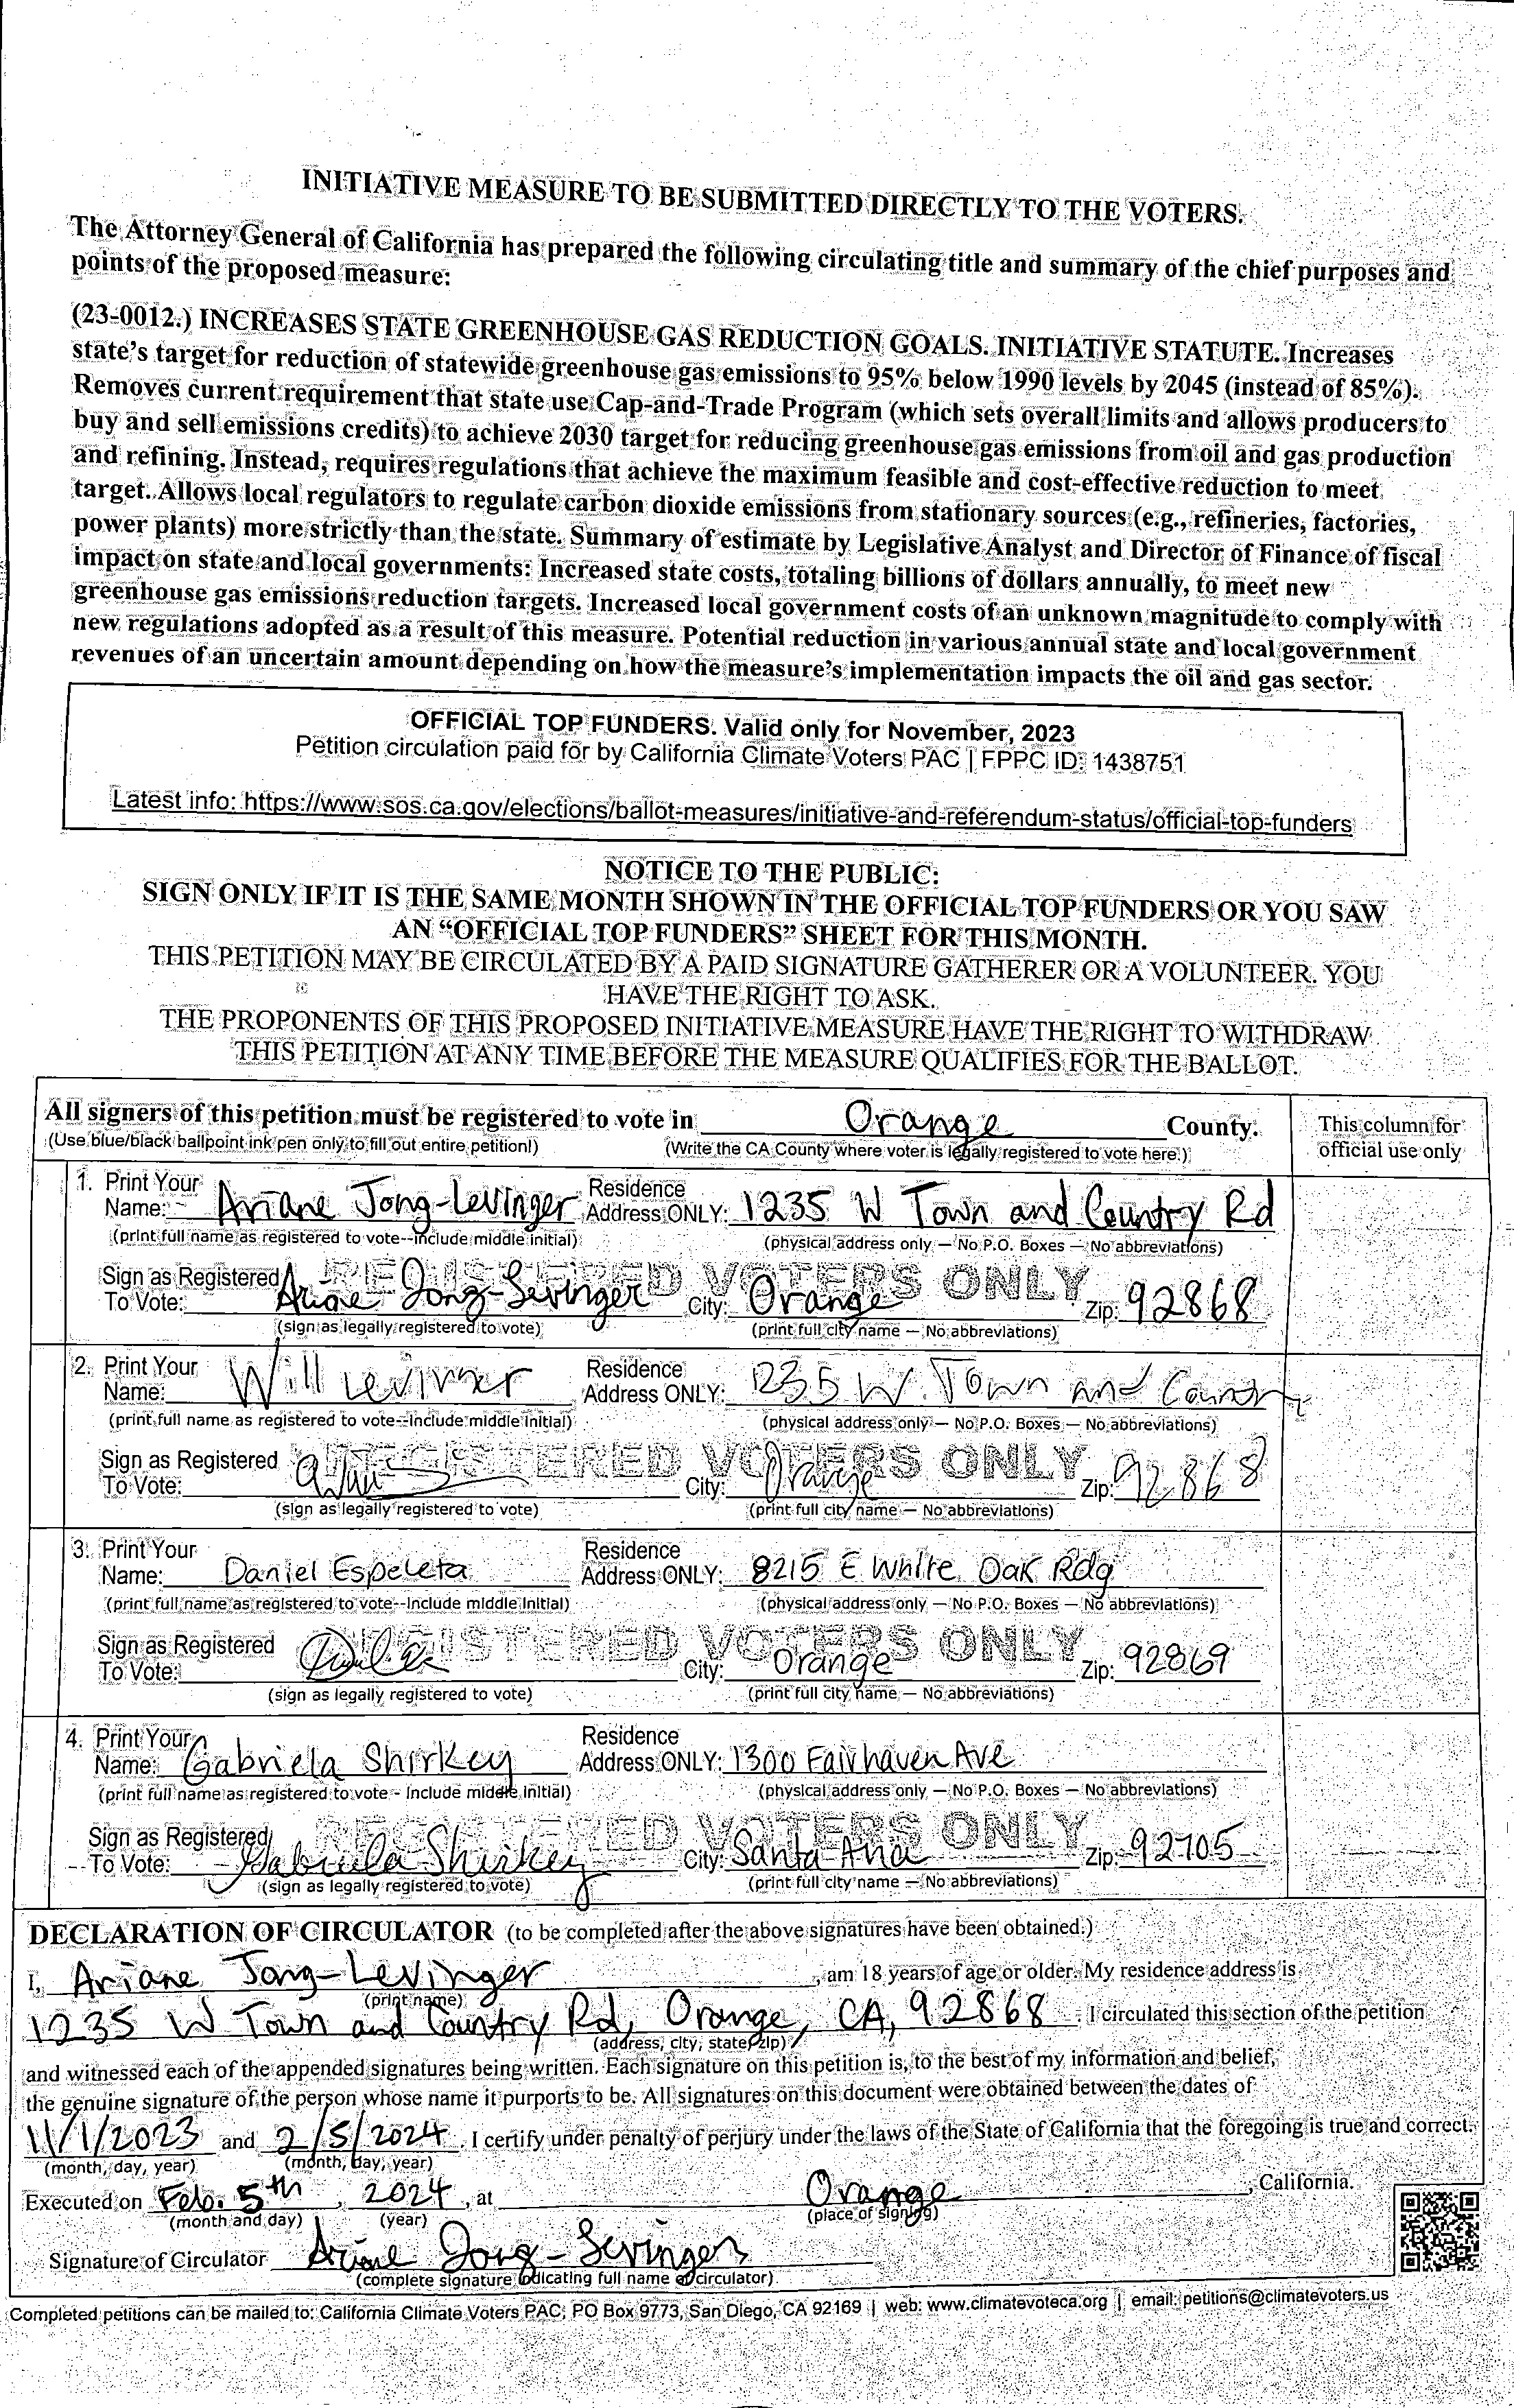 INITIATIVE MEASURE TO BE SUBMITTED DIRECTLY TO THE VOTERS.
The Attorney General of California has prepared the following circulating title and summary of the chief purposes and
points of the proposed measure:
(23-0012.) INCREASES STATE GREENHOUSE GAS REDUCTION GOALS. INITIATIVE STATUTE. Increases
state's target for reduction of statewide greenhouse gas emissions to 95% below 1990 levels by 2045 (instead of 85%).
Removes current requirement that state use Cap-and-Trade Program (which sets overall limits and allows producers to
buy and sell emissions credits) to achieve 2030 target for reducing greenhouse gas emissions from oil and gas production
and refining. Instead, requires regulations that achieve the maximum feasible and cost-effective reduction to meet
target. Allows local regulators to regulate carbon dioxide emissions from stationary sources (e.g., refineries, factories,
power plants) more strictly than the state. Summary of estimate by Legislative Analyst and Director of Finance of fiscal
impact on state and local governments: Increased state costs, totaling billions of dollars annually, to meet new
greenhouse gas emissions reduction targets. Increased local government costs of an unknown magnitude to comply with
new regulations adopted as a result of this measure. Potential reduction in various annual state and local government
revenues of an uncertain amount depending on how the measure's implementation impacts the oil and gas sector.
OFFICIAL TOP FUNDERS. Valid only for November, 2023
Petition circulation paid for by California Climate Voters PAC | FPPC ID: 1438751
Latest info: https://www.sos.ca.gov/elections/ballot-measures/initiative-and-referendum-status/official-top-funders
NOTICE TO THE PUBLIC:
SIGN ONLY IF IT IS THE SAME MONTH SHOWN IN THE OFFICIAL TOP FUNDERS OR YOU SAW
AN "OFFICIAL TOP FUNDERS" SHEET FOR THIS MONTH.
THIS PETITION MAY BE CIRCULATED BY A PAID SIGNATURE GATHERER OR A VOLUNTEER. YOU
HAVE THE RIGHT TO ASK.
THE PROPONENTS OF THIS PROPOSED INITIATIVE MEASURE HAVE THE RIGHT TO WITHDRAW
THIS PETITION AT ANY TIME BEFORE THE MEASURE QUALIFIES FOR THE BALLOT.
All signers of this petition must be registered to vote in Orange County. This column for
(Use blue/black ballpoint ink pen only to fill out entire petition!) (Write the CA County where voter is legally registered to vote here.) official use only
1. Print Your Residence
Name: Ariane Jong-Levinger Address ONLY: 1235 W Town and Country Rd
(print full name as registered to vote--include middle initial) (physical address only — No P.O. Boxes — No abbreviations)
REGISTERED VOTERS ONLY
Sign as Registered
To Vote: Ariane Jong-Levinger City: Orange Zip: 92868
(sign as legally registered to vote) (print full city name — No abbreviations)
2. Print Your Residence
Name: Will Levinger Address ONLY: 1235 W. Town and Country
(print full name as registered to vote--include middle initial) (physical address only — No P.O. Boxes — No abbreviations)
REGISTERED VOTERS ONLY
Sign as Registered
To Vote: City: Orange Zip: 92868
(sign as legally registered to vote) (print full city name — No abbreviations)
3. Print Your Residence
Name: Daniel Espeleta Address ONLY: 8215 E White Oak Rdg
(print full name as registered to vote--include middle initial) (physical address only — No P.O. Boxes — No abbreviations)
REGISTERED VOTERS ONLY
Sign as Registered
To Vote: City: Orange Zip: 92869
(sign as legally registered to vote) (print full city name — No abbreviations)
4. Print Your Residence
Name: Gabriela Shirkey Address ONLY: 1300 Fairhaven Ave
(print full name as registered to vote - include middle initial) (physical address only — No P.O. Boxes — No abbreviations)
REGISTERED VOTERS ONLY
Sign as Registered
To Vote: Gabriela Shirkey City: Santa Ana Zip: 92705
(sign as legally registered to vote) (print full city name — No abbreviations)
DECLARATION OF CIRCULATOR (to be completed after the above signatures have been obtained.)
I, Ariane Jong-Levinger, am 18 years of age or older. My residence address is
(print name)
1235 W Town and Country Rd, Orange, CA, 92868. I circulated this section of the petition
(address, city, state, zip)
and witnessed each of the appended signatures being written. Each signature on this petition is, to the best of my information and belief,
the genuine signature of the person whose name it purports to be. All signatures on this document were obtained between the dates of
11/1/2023 and 2/5/2024. I certify under penalty of perjury under the laws of the State of California that the foregoing is true and correct.
(month, day, year) (month, day, year)
Executed on Feb. 5th, 2024, at Orange, California.
(month and day) (year) (place of signing)
Signature of Circulator Ariane Jong-Levinger
(complete signature indicating full name of circulator)
Completed petitions can be mailed to: California Climate Voters PAC, PO Box 9773, San Diego, CA 92169 | web: www.climatevoteca.org | email: petitions@climatevoters.us